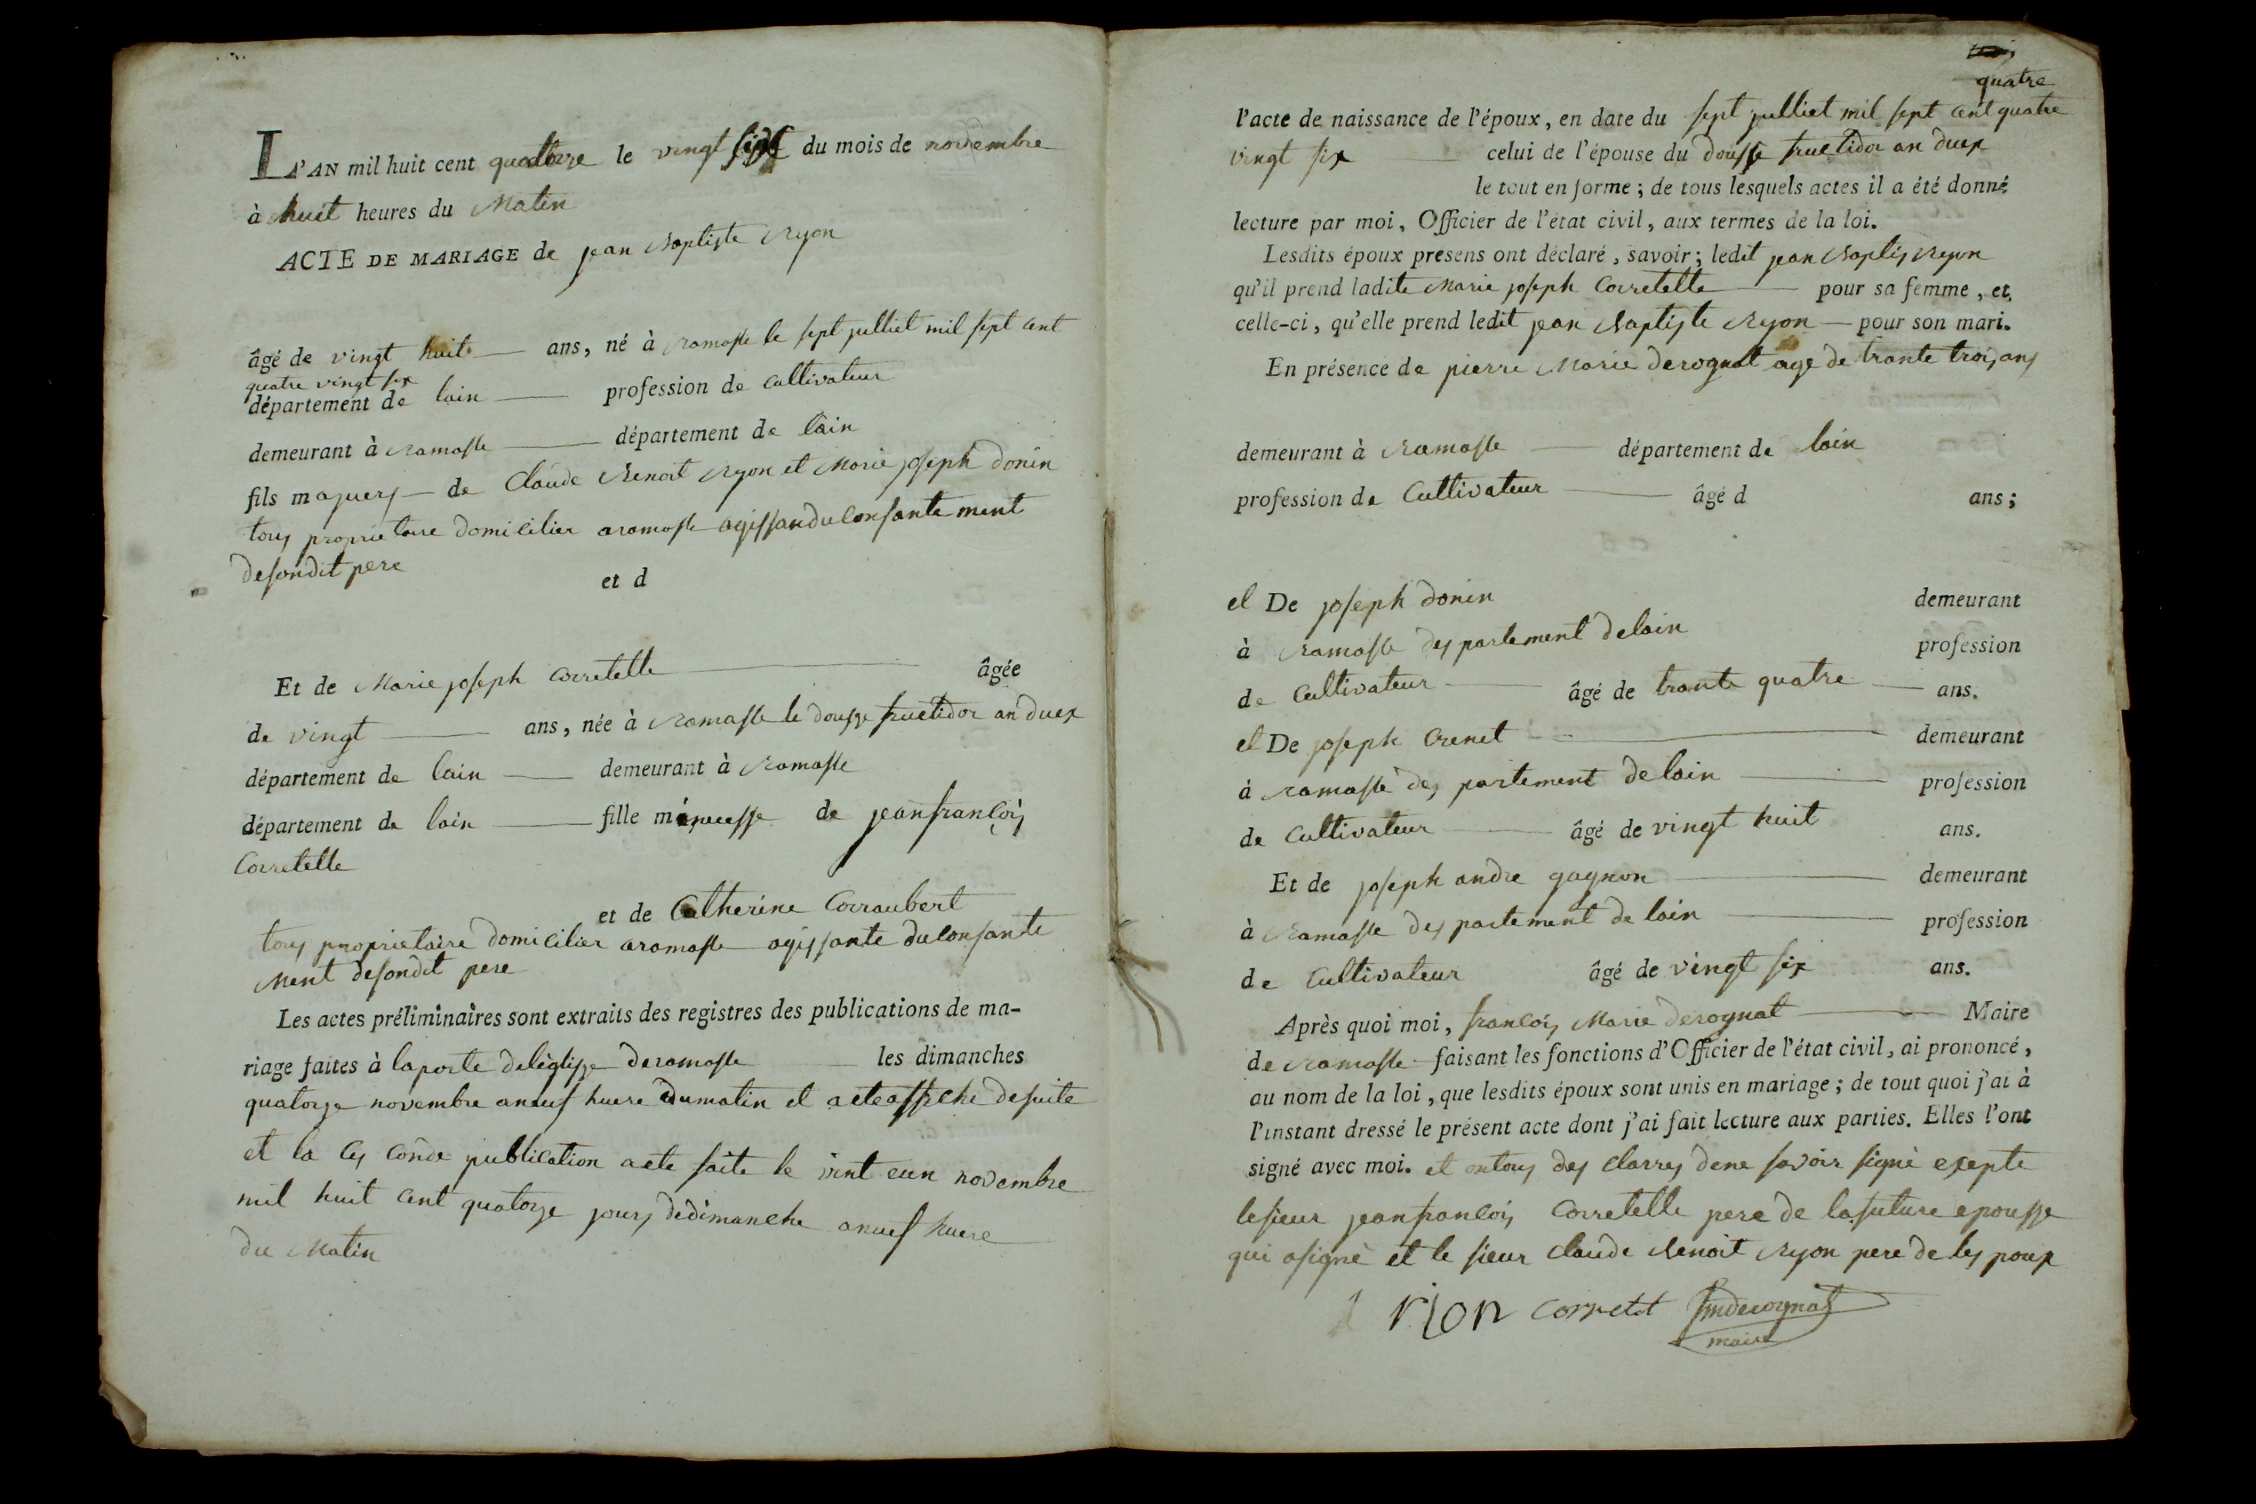 L'AN mil huit cent quattorze le vingt sept du mois de novembre
à huit heures du Matin
ACTE DE MARIAGE de jean Baptiste Ryon
âgé de vingt huit ans, né à ramasse le sept julliet mil sept cent
quatre vingt six
département de lain profession de cultivateur
demeurant à ramasse département de lain
fils majeurs de Claude Benoit Ryon et Marie joseph donin
tous proprietaire domicilier aramasse agissandu consante ment
desondit pere
et d
Et de Marie joseph Corretelle âgée
de vingt ans, née à Ramasse le dousze fructidor an duex
département de lain demeurant à Ramasse
département de lain fille de jeanfrançois
Corretelle
et de Catherine Corraubert
tous proprietaire domicilier aramasse agissante du consante
Ment desondit pere
Les actes préliminaires sont extraits des registres des publications de ma-
riage faites à laporte deléglisze deramasse les dimanches
quatorze novembre aneuf huere dumatin et acte affiche desuite
et la ces conde publication acte faite le vint eun novembre
mil huit cent quatorze jours dedimanche anuef huere
du Matin
quatre
l'acte de naissance de l'époux, en date du sept julliet mil sept cent quatre
vingt six celui de l'épouse du dousze fructidor an duex
le tout en forme ; de tous lesquels actes il a été donné
lecture par moi, Officier de l'état civil, aux termes de la loi.
Lesdits époux présens ont déclaré, savoir ; ledit jean Baptis Ryon
qu'il prend ladite Marie joseph Corretelle pour sa femme, et
celle-ci, qu'elle prend ledit jean Baptiste Ryon pour son mari.
En présence de pierre Marie derognat age de trante trois ans
demeurant à Ramasse département de lain
profession de Cultivateur âgé d ans ;
et De joseph donin demeurant
à Ramasse des partement delain profession
de Cultivateur âgé de trante quatre ans.
et De joseph Crenet demeurant
à ramasse des partement de lain profession
de Cultivateur âgé de vingt huit ans.
Et de joseph andre gagnon demeurant
à Ramasse des partement de lain profession
de Cultivateur âgé de vingt six ans.
Après quoi moi, françois Marie derognat Maire
de ramasse faisant les fonctions d'Officier de l'état civil, ai prononcé,
au nom de la loi, que lesdits époux sont unis en mariage ; de tout quoi j'ai à
l'instant dressé le présent acte dont j'ai fait lecture aux parties. Elles l'ont
signé avec moi. et ontous des clarres dene savoir signé exepte
lesieur jeanfrançois Corretelle pere de lafuture epousse
qui asigné et le sieur Claude Benoit Ryon pere de les poux
rion corretet fmderognat
maire